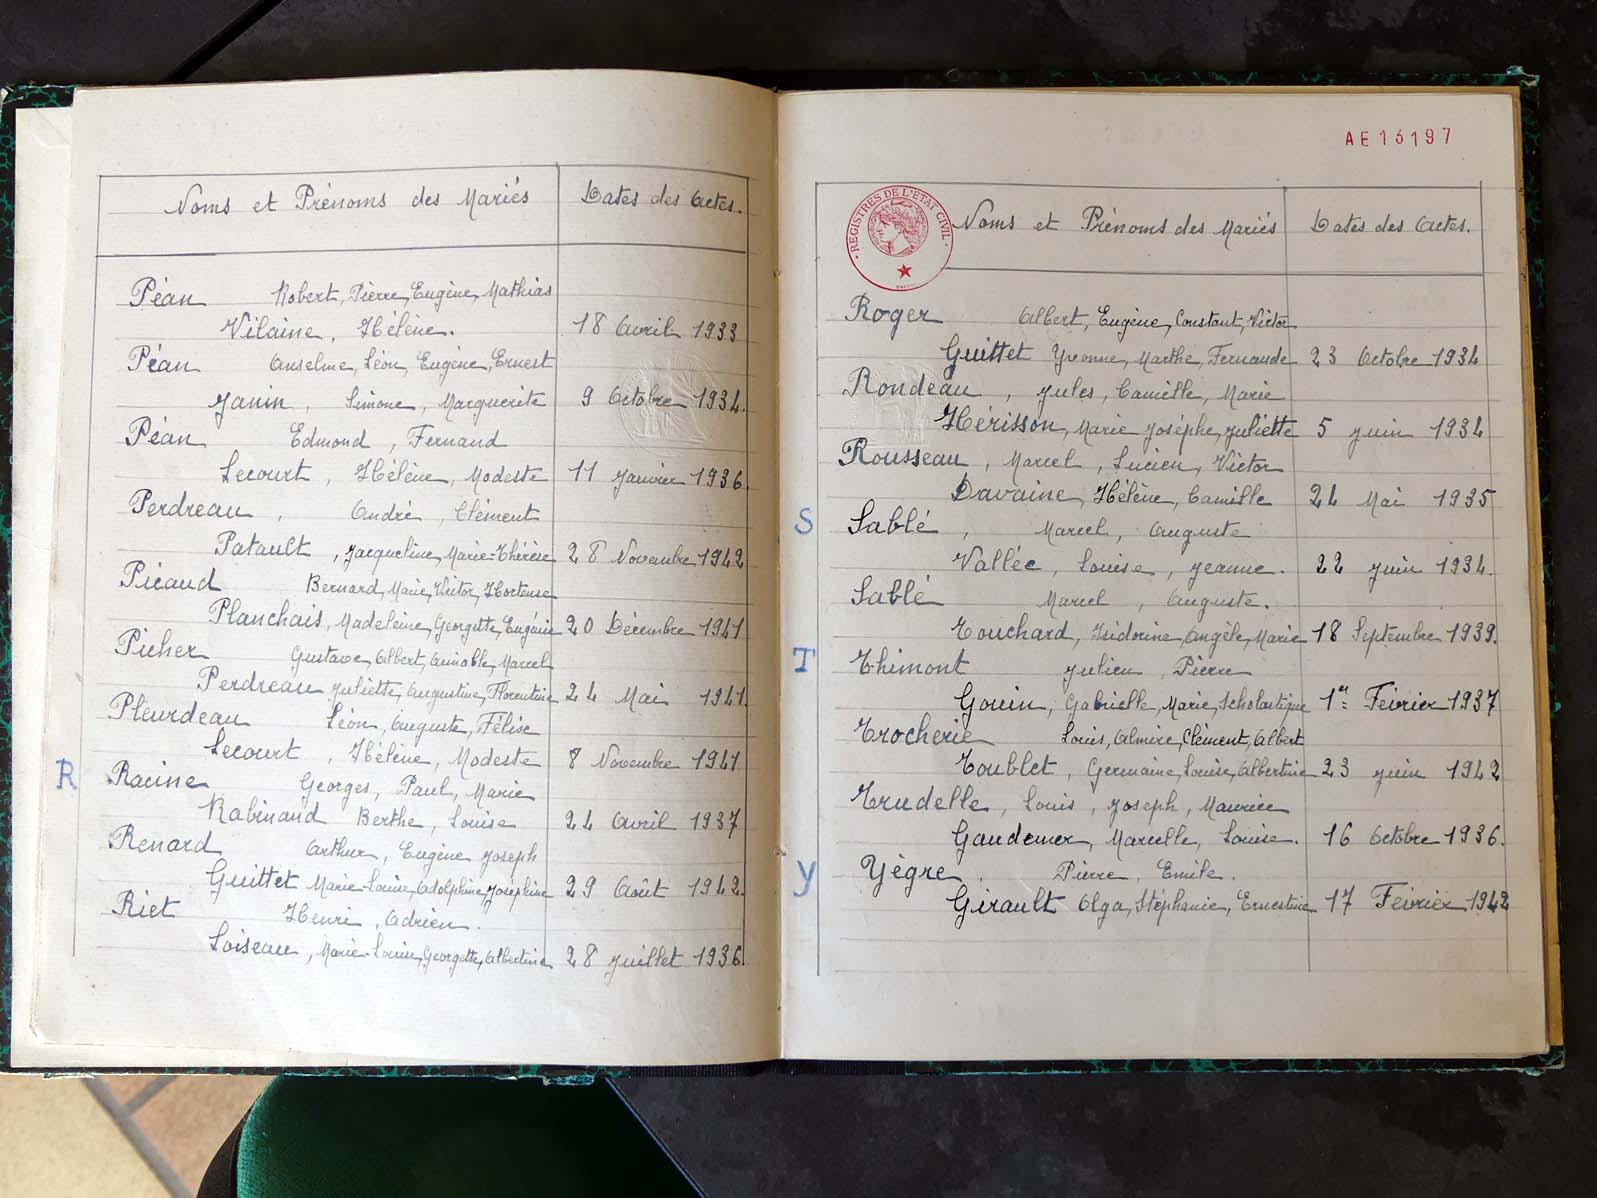 Noms et Prénoms des Mariés Dates des Actes.
Péan Robert, Pierre, Eugène, Mathias
Vilaine, Hélène. 18 Avril 1933
Péan Anselme, Léon, Eugène, Ernest
Janin, Simone, Marguerite 9 Octobre 1934.
Péan Edmond, Fernand
Lecourt, Hélène, Modeste 11 Janvier 1936
Perdreau, André, Clément
Patault, Jacqueline, Marie-Thérèse 28 Novembre 1942
Picaud Bernard, Marie, Victor, Hortense
Planchais, Madeleine, Georgette, Eugénie 20 Décembre 1941
Picher Gustave, Albert, Aimable, Marcel
Perdreau Juliette, Augustine, Florentine 24 Mai 1941.
Pleurdeau Léon, Auguste, Félise
Lecourt, Hélène, Modeste 8 Novembre 1941
R Racine Georges, Paul, Marie
Rabinand Berthe, Louise 24 Avril 1937
Renard Arthur, Eugène Joseph
Guittet Marie-Louise, Adolphine, Josephine 29 Août 1942.
Riet Henri, Adrien.
Loiseau, Marie-Louise, Georgette, Albertine 28 Juillet 1936
AE 13197
REGISTRES DE L'ÉTAT CIVIL
Noms et Prénoms des Mariés Dates des Actes.
Roger Albert, Eugène, Constant, Victor
Guittet Yvonne, Marthe, Fernande 23 Octobre 1934
Rondeau, Jules, Camille, Marie
Hérisson, Marie Josèphe, Juliette 5 Juin 1934
Rousseau, Marcel, Lucien, Victor
Davaine, Hélène, Camille 24 Mai 1935
S Sablé, Marcel, Auguste
Vallée, Louise, Jeanne. 22 Juin 1934.
Sablé Marcel, Auguste.
Touchard, Isidorine, Angèle, Marie 18 Septembre 1939.
T Thimont Julien, Pierre
Gouin, Gabrielle, Marie, Scholastique 1er Février 1937
Trocherie Louis, Almire, Clément, Albert
Toublet, Germaine, Louise, Albertine 23 Juin 1942
Trudelle, Louis, Joseph, Maurice
Gaudemer, Marcelle, Louise. 16 Octobre 1936.
Y Yègre, Pierre, Emile.
Girault Olga, Stéphanie, Ernestine 17 Février 1942